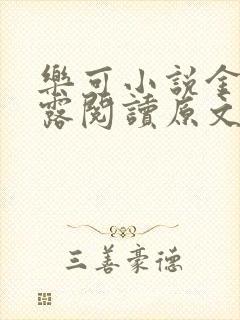 樂可小說金
露閱讀原文
三善豪德